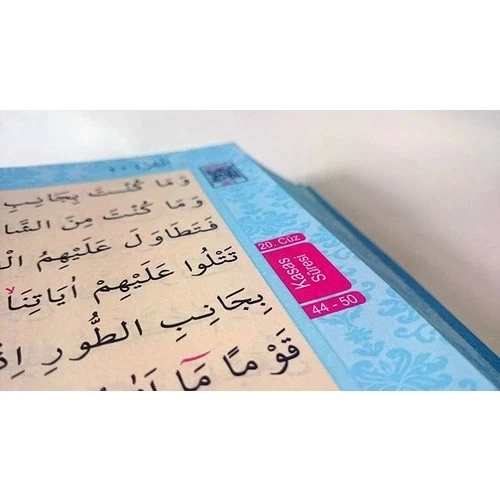 وَمَا كُنْتَ بِجَانِبِ
وَمَا كُنْتَ مِنَ
فَتَطَاوَلَ عَلَيْهِمُ
تَتْلُوا عَلَيْهِمْ اٰيَاتِنَا
بِجَانِبِ الطُّورِ اِذْ
قَوْمًا مَٓا
20. Cüz
Kasas
Sûresi
44 - 50